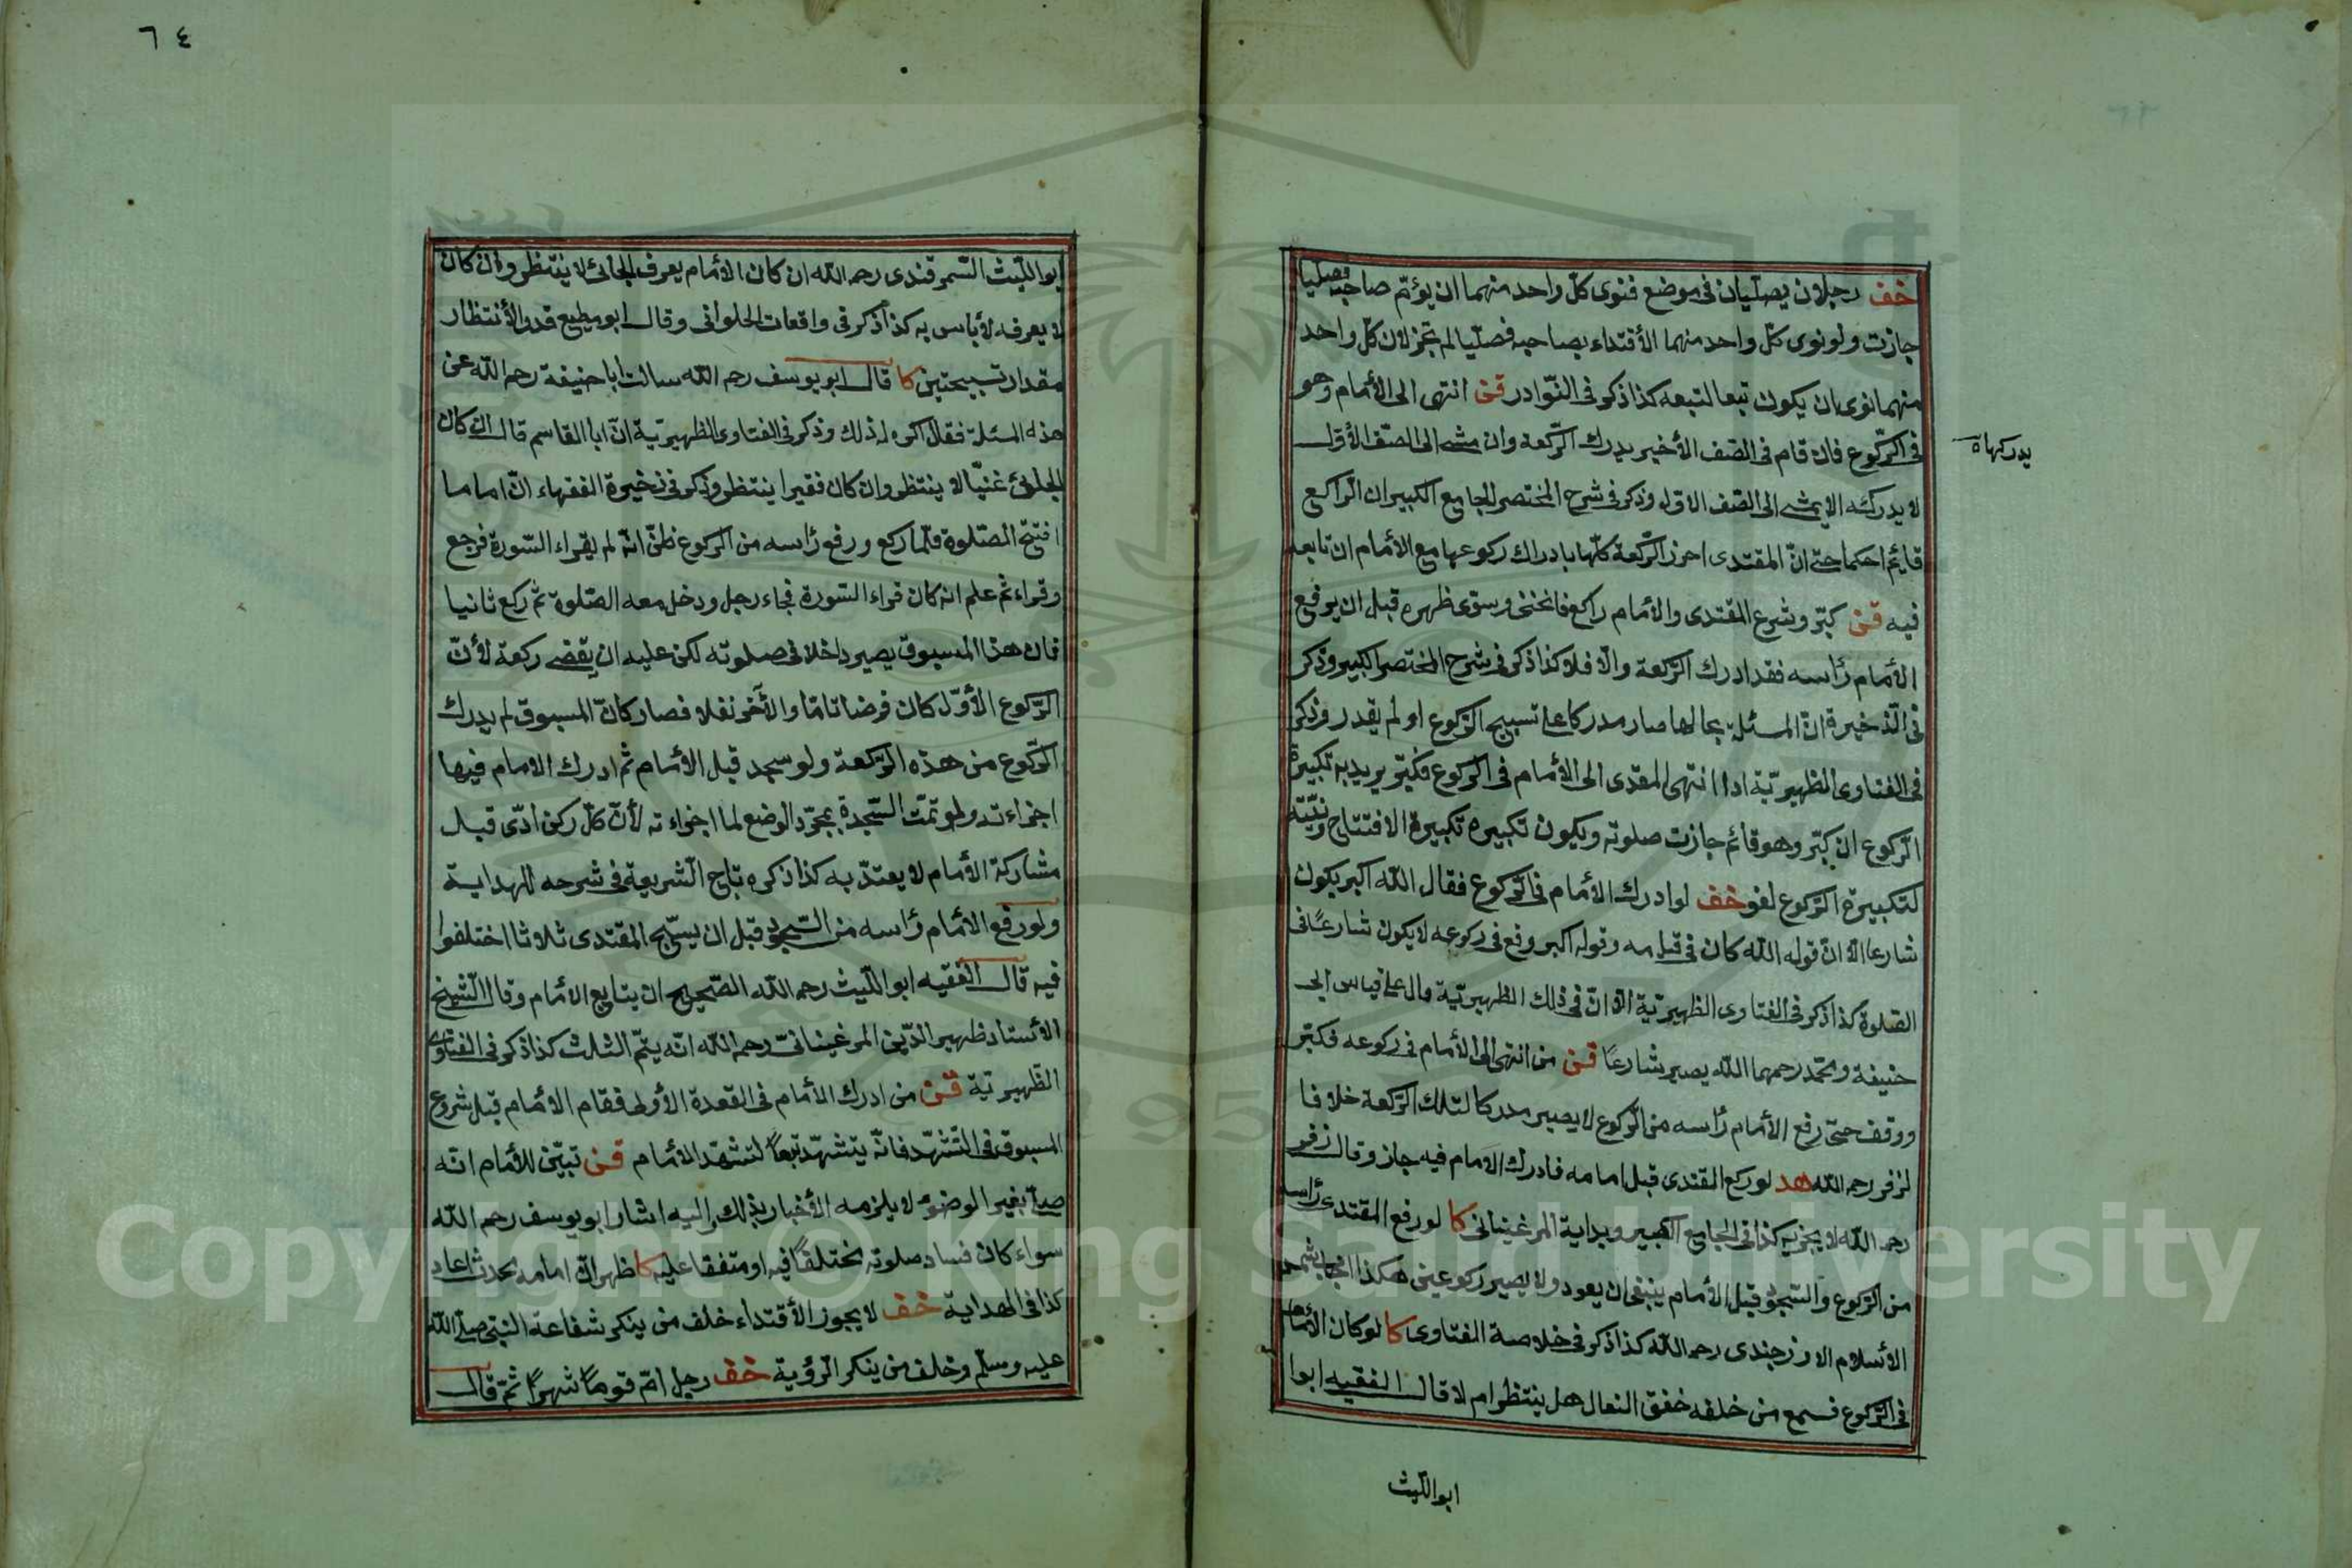 خف رجلان يصليان في موضع فنوى كل واحد منهما ان يؤتم صاحبه فصليا
جازت ولو نوى كل واحد منهما الأقتداء بصاحبه فصليا لم تجز لان كل واحد
منهما نوى ان يكون تبعا لتبعه كذا ذكر في النوادر قن انتهى الى الأمام وهو
في الركوع فان قام في الصف الأخير يدرك الركعة وان مشى الى الصف الأول
يدركها ه
لا يدركه لا يمشى الى الصف الاول وذكر في شرح المختصر للجامع الكبير ان الراكع
قايم احكما حتى ان المقتدى احرز الركعة كلها بادراك ركوعها مع الأمام ان تابعه
فيه قن كبر وشرع المقتدى والأمام راكع فانحنى وسوى ظهره قبل ان يرفع
الأمام رأسه فقد ادرك الركعة والا فلا كذا ذكر في شرح المختصر الكبير وذكر
في الذخيرة ان المسئلة بحالها صار مدركا على تسبيح الركوع او لم يقدر وذكر
في الفتاوى الظهيرية اذا انتهى المقدى الى الأمام في الركوع فكبر يريد به تكبيرة
الركوع ان كبر وهو قائم جازت صلوته ويكون تكبيره تكبيرة الافتتاح ونيته
لتكبيرة الركوع لغو خف لو ادرك الأمام في الركوع فقال الله اكبر يكون
شارعا الا ان قوله الله كان في قيامه وقوله اكبر وقع في ركوعه لا يكون شارعا في
الصلوة كذا ذكر في الفتاوى الظهيرية الا ان في ذلك الظهيرية قال على قياس ابى
حنيفة ومحمد رحمهما الله يصير شارعا قن من انتهى الى الأمام في ركوعه فكبر
ووقف حتى رفع الأمام رأسه من الركوع لا يصير مدركا لتلك الركعة خلافا
لزفر رحمه الله هد لو ركع المقتدى قبل امامه فادرك الامام فيه جاز وقال زفر
رحمه الله لا يجزيه كذا في الجامع الكبير وبداية المرغينانى كا لو رفع المقتدى رأسه
من الركوع والسجود قبل الأمام ينبغى ان يعود ولا يصير ركوعين هكذا اجاب شمس
الأسلام الاوزجندى رحمه الله كذا ذكر في خلاصة الفتاوى كا لو كان الأمام
في الركوع فسمع من خلفه خفق النعال هل ينتظر ام لا قال الفقيه ابوا
ابو الليث
٦٤
ابو الليث السمرقندى رحمه الله ان كان الأمام يعرف الجائئ لا ينتظر وان كان
لا يعرفه لأباس به كذا ذكر في واقعات الحلوانى وقال ابو مطيع قدر الأنتظار
مقدار تسبيحتين كا قال ابو يوسف رحمه الله سالت ابا حنيفة رحمه الله عن
هذه المسئلة فقال اكره له ذلك وذكر في الفتاوى الظهيرية ان ابا القاسم قال ان كان
الجائئ غنيا لا ينتظر وان كان فقيرا ينتظر وذكر في ذخيرة الفقهاء ان اماما
افتتح الصلوة فلما ركع ورفع رأسه من الركوع ظن انه لم يقراء السورة فرجع
وقراء ثم علم انه كان قراء السورة فجاء رجل ودخل معه الصلوة ثم ركع ثانيا
فان هذا المسبوق يصير داخلا في صلوته لكن عليه ان يقضى ركعة لأن
الركوع الأول كان فرضا تاما والأخر نفلا فصار كان المسبوق لم يدرك
الركوع من هذه الركعة ولو سجد قبل الأمام ثم ادرك الامام فيها
اجزاءته ولو تمت السجدة بمجرد الوضع لما اجزاءته لأن كل ركن ادى قبل
مشاركة الأمام لا يعتد به كذا ذكره تاج الشريعة في شرحه للهداية
ولو رفع الأمام رأسه من السجود قبل ان يسبح المقتدى ثلاثا اختلفوا
فيه قال الفقيه ابو الليث رحمه الله الصحيح ان يتابع الأمام وقال الشيخ
الأستاد ظهير الدين المرغينانى رحمه الله انه يتم الثلث كذا ذكر في الفتاوى
الظهيرية قن من ادرك الأمام في القعدة الأولى فقام الأمام قبل شروع
المسبوق في التشهد فانه يتشهد تبعا لتشهد الأمام قن تبين للأمام انه
صلى بغير الوضوء لا يلزمه الأخبار بذلك واليه اشار ابو يوسف رحمه الله
سواء كان فساد صلوته مختلفا فيه او متفقا عليه كا ظهر ان امامه محدث اعاد
كذا في الهداية خف لا يجوز الأقتداء خلف من ينكر شفاعة النبى صلى الله
عليه وسلم وخلف من ينكر الرؤية خف رجل ام قوما شهرا ثم قال
Copyright © King Saud University